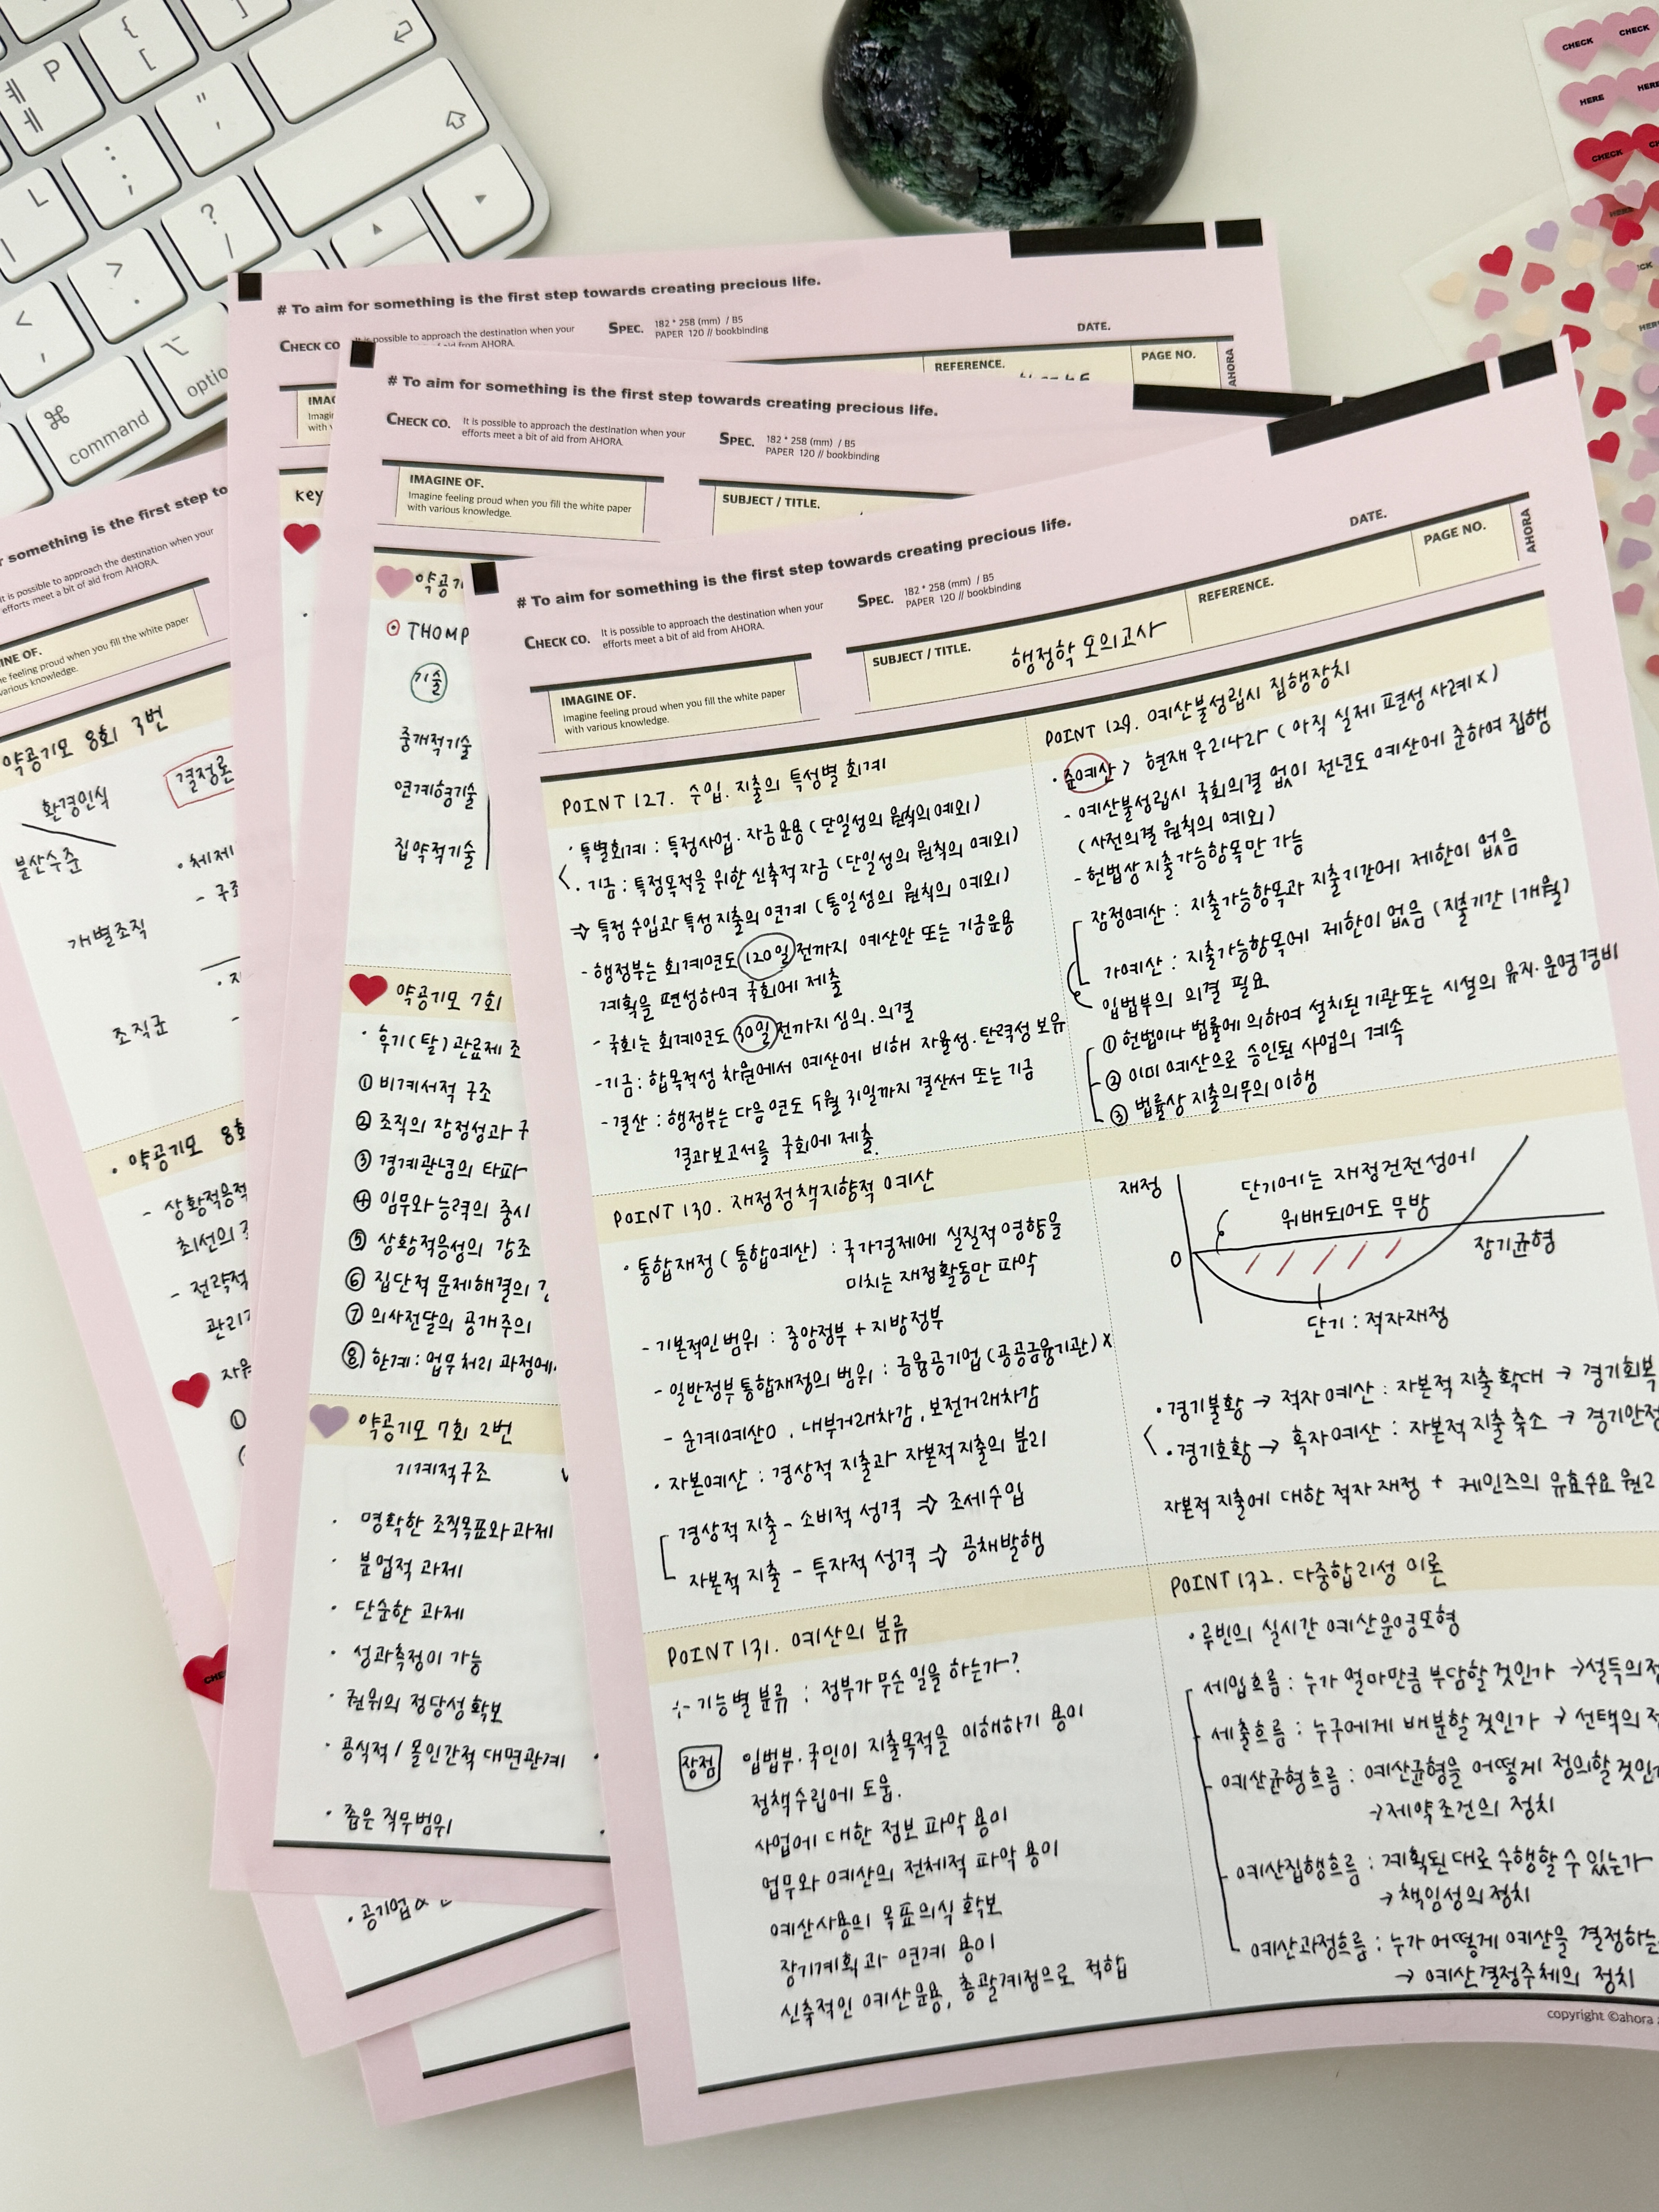 {
[
P
ㅖ
ㅔ
"
'
:
;
L
?
/
>
.
<
,
⌘
command
⌥
optio
CHECK
CHECK
HERE
HERE
CHECK
# To aim for something is the first step towards creating precious life.
CHECK CO
It is possible to approach the destination when your
SPEC.
182 * 258 (mm) / B5
PAPER 120 // bookbinding
DATE.
REFERENCE.
PAGE NO.
AHORA
key
# To aim for something is the first step towards creating precious life.
CHECK CO.
It is possible to approach the destination when your
efforts meet a bit of aid from AHORA.
SPEC.
182 * 258 (mm) / B5
PAPER 120 // bookbinding
IMAGINE OF.
Imagine feeling proud when you fill the white paper
with various knowledge.
SUBJECT / TITLE.
THOMP
기술
중개적기술
연계형기술
집약적기술
약공기모 7회
· 후기(탈)관료제 조
① 비계서적 구조
② 조직의 잠정성과 구
③ 경계관념의 타파
④ 임무와 능력의 중시
⑤ 상황적응성의 강조
⑥ 집단적 문제해결의
⑦ 의사전달의 공개주의
⑧ 한계 : 업무처리 과정에
약공기모 7회 2번
기계적구조
· 명확한 조직목표와 과제
· 분업적 과제
· 단순한 과제
· 성과측정이 가능
· 권위의 정당성 확보
· 공식적 / 몰인간적 대면관계
· 좁은 직무범위
something is the first step to
It is possible to approach the destination when your
efforts meet a bit of aid from AHORA.
feeling proud when you fill the white paper
various knowledge.
약공기모 8회 3번
환경인식
결정론
분산수준
· 체제
- 구조
개별조직
조직군
· 약공기모 8회
- 상황적응적
최선의
- 전략적
관리
# To aim for something is the first step towards creating precious life.
CHECK CO.
It is possible to approach the destination when your
efforts meet a bit of aid from AHORA.
SPEC.
182 * 258 (mm) / B5
PAPER 120 // bookbinding
DATE.
IMAGINE OF.
Imagine feeling proud when you fill the white paper
with various knowledge.
SUBJECT / TITLE.
행정학 모의고사
REFERENCE.
PAGE NO.
AHORA
POINT 127. 수입. 지출의 특성별 회계
· 특별회계 : 특정사업 · 자금운용 (단일성의 원칙의 예외)
· 기금 : 특정목적을 위한 신축적 자금 (단일성의 원칙의 예외)
⇒ 특정 수입과 특성 지출의 연계 (통일성의 원칙의 예외)
- 행정부는 회계연도 120일 전까지 예산안 또는 기금운용
계획을 편성하여 국회에 제출
- 국회는 회계연도 30일 전까지 심의. 의결
- 기금 : 합목적성 차원에서 예산에 비해 자율성. 탄력성 보유
- 결산 : 행정부는 다음연도 5월 31일까지 결산서 또는 기금
결과보고서를 국회에 제출.
POINT 129. 예산불성립시 집행장치
· 준예산 > 현재 우리나라 ( 아직 실제 편성 사례 X )
- 예산불성립시 국회의결 없이 전년도 예산에 준하여 집행
(사전의결 원칙의 예외)
- 헌법상 지출가능항목만 가능
잠정예산 : 지출가능항목과 지출기간에 제한이 없음
가예산 : 지출가능항목에 제한이 없음 (지출기간 1개월)
입법부의 의결 필요
① 헌법이나 법률에 의하여 설치된 기관 또는 시설의 유지·운영경비
② 이미 예산으로 승인된 사업의 계속
③ 법률상 지출의무의 이행
POINT 130. 재정정책지향적 예산
· 통합재정 (통합예산) : 국가경제에 실질적 영향을
미치는 재정활동만 파악
- 기본적인 범위 : 중앙정부 + 지방정부
- 일반정부 통합재정의 범위 : 금융공기업 (공공금융기관) X
- 순계예산O , 내부거래차감 , 보전거래차감
· 자본예산 : 경상적 지출과 자본적 지출의 분리
경상적 지출 - 소비적 성격 ⇒ 조세수입
자본적 지출 - 투자적 성격 ⇒ 공채발행
재정
단기에는 재정건전성에
위배되어도 무방
0
장기균형
단기 : 적자재정
· 경기불황 → 적자예산 : 자본적 지출 확대 → 경기회복
· 경기호황 → 흑자예산 : 자본적 지출 축소 → 경기안정
자본적 지출에 대한 적자 재정 + 케인즈의 유효수요
POINT 131. 예산의 분류
기능별 분류 : 정부가 무슨 일을 하는가?
장점
입법부. 국민이 지출목적을 이해하기 용이
정책수립에 도움.
사업에 대한 정보 파악 용이
업무와 예산의 전체적 파악 용이
예산사용의 목표의식 확보
장기계획과 연계 용이
신축적인 예산운용, 총괄계정으로 적합
POINT 132. 다중합리성 이론
· 루빈의 실시간 예산운영모형
세입흐름 : 누가 얼마만큼 부담할 것인가 → 설득의
세출흐름 : 누구에게 배분할 것인가 → 선택의
예산균형흐름 : 예산균형을 어떻게 정의할 것인가
→ 제약조건의 정치
예산집행흐름 : 계획된 대로 수행할 수 있는가
→ 책임성의 정치
예산과정흐름 : 누가 어떻게 예산을 결정하는
→ 예산결정주체의 정치
copyright ©ahora